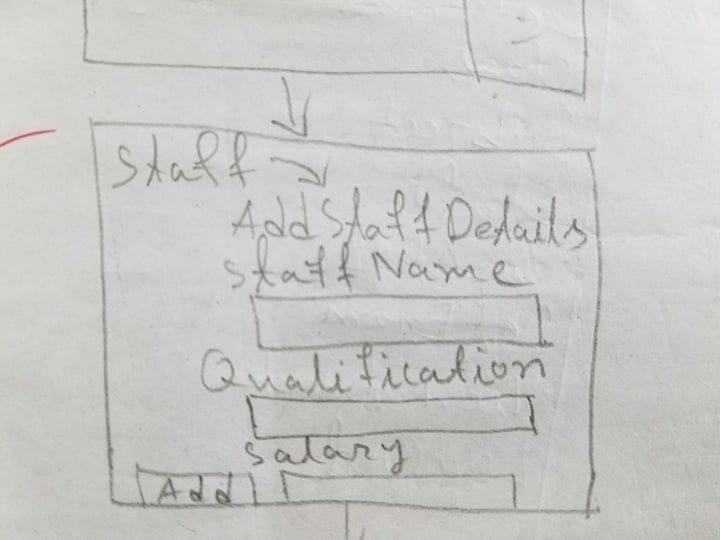 Staff
Add Staff Details
Staff Name
Qualification
Salary
Add